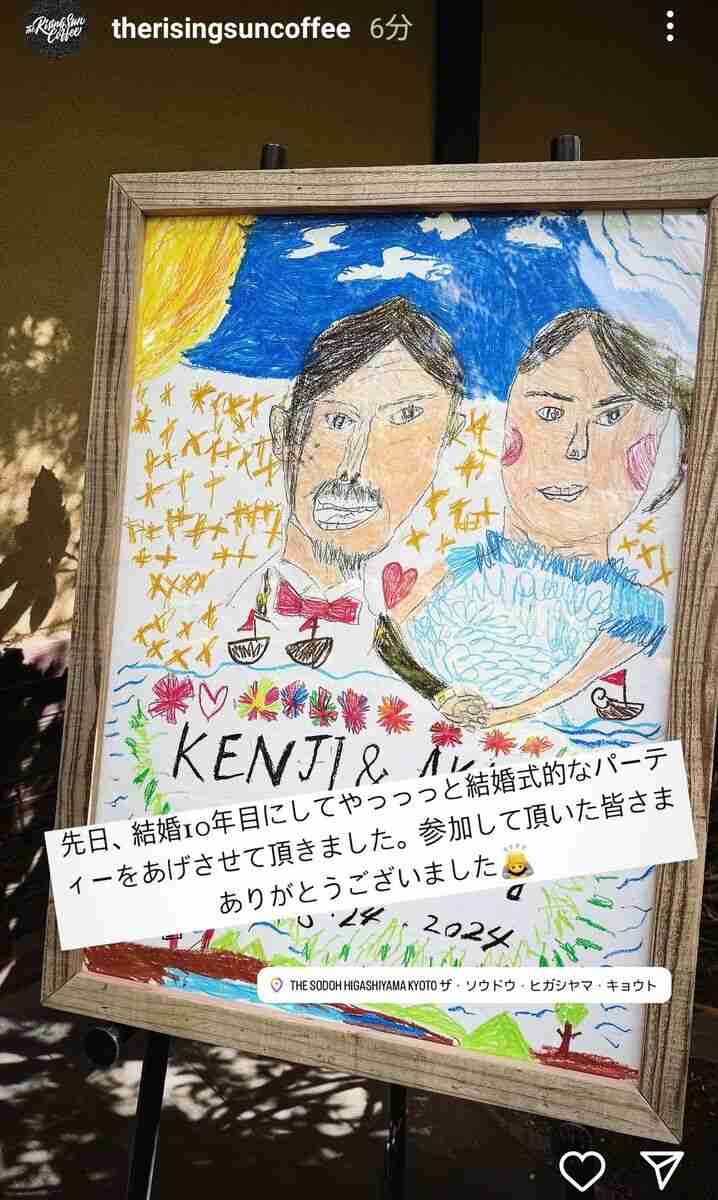 The Rising Sun Coffee
therisingsuncoffee 6分
KENJI &
先日、結婚10年目にしてやっっっと結婚式的なパーテ
ィーをあげさせて頂きました。参加して頂いた皆さま
ありがとうございました🙇
24.2024
THE SODOH HIGASHIYAMA KYOTO ザ・ソウドウ・ヒガシヤマ・キョウト